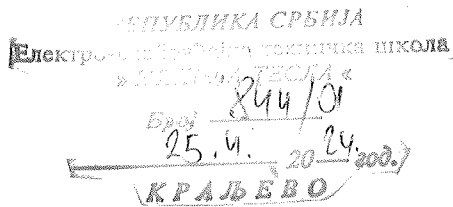 РЕПУБЛИКА СРБИЈА
Електро техничка школа
» ТЕСЛА «
Број 844/01
25.4. 2024. год.
КРАЉЕВО